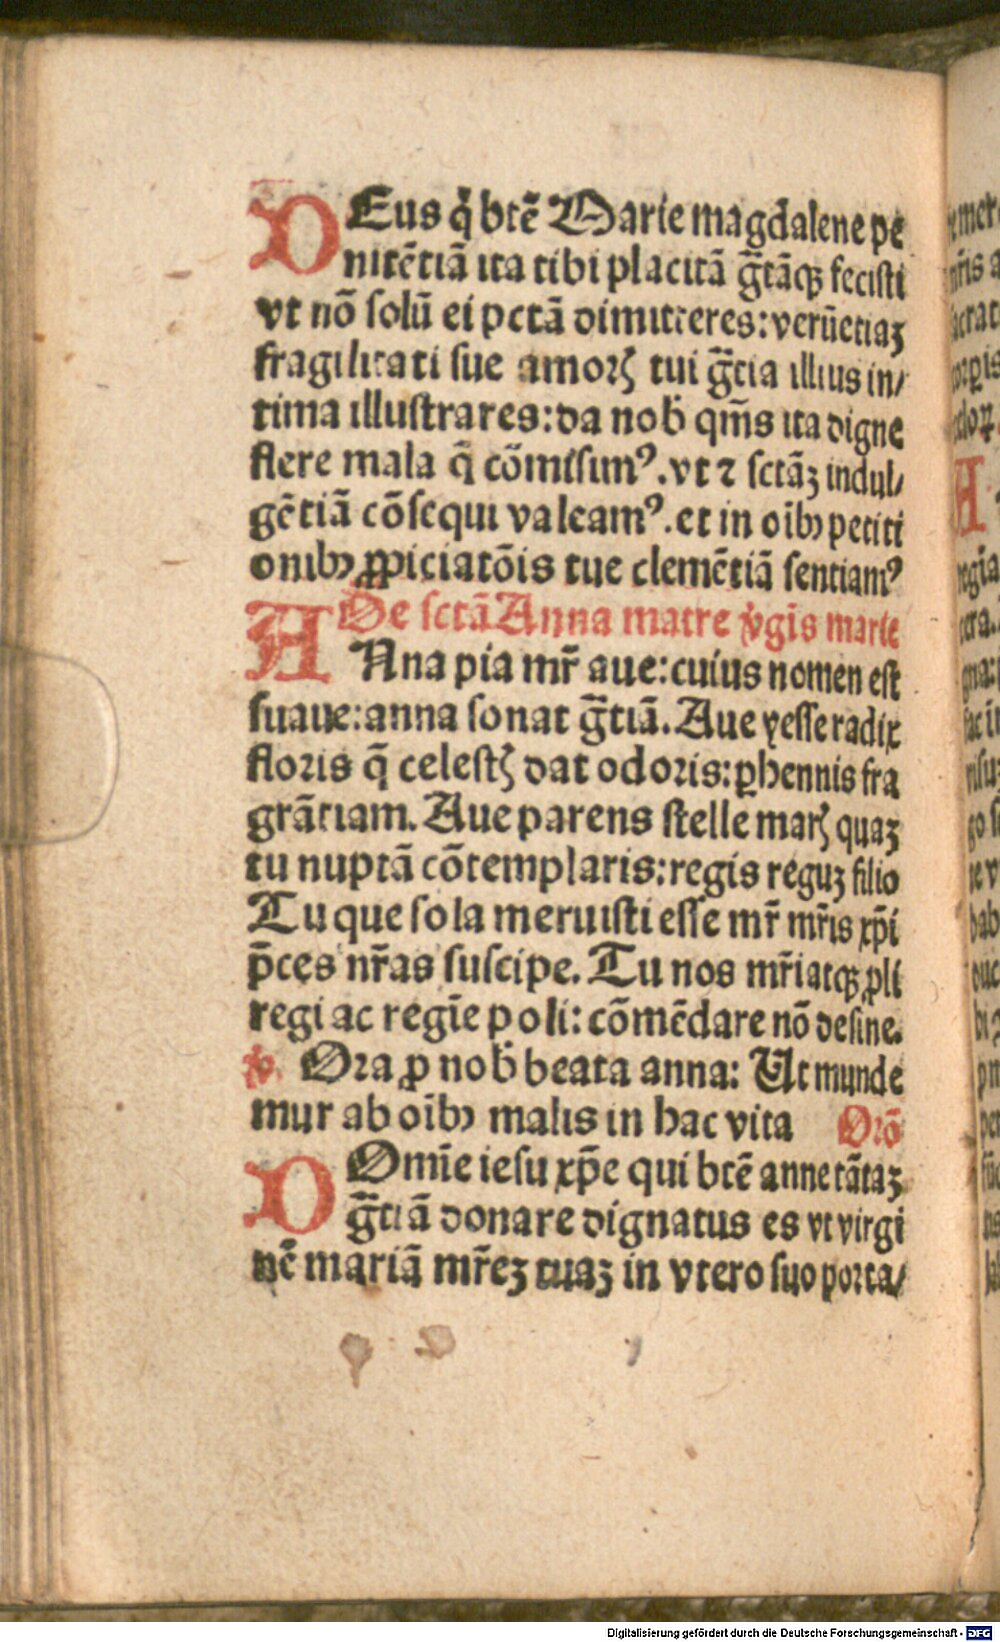 DEus q̇ btē Marie magdalene pe
nitētiā ita tibi placitā g̅tāq̄ fecisti
vt nō solū ei pctā dimitteres: verūetiaꝫ
fragilitati sue amorꝭ tui g̅tia illius in/
tima illustrares: da nob̄ qm̄s ita digne
flere mala q̄ cōmisimꝰ. vt ⁊ sctāꝫ indul/
gētiā cōsequi valeamꝰ. et in oīb⁹ petiti
onib⁹ ꝓpiciatōis tue clemētiā sentiamꝰ
De sctā Anna matre v̇gīs marie
ANna pia mr̄ aue: cuius nomen est
suaue: anna sonat g̅tiā. Aue yesse radix
floris q̄ celestꝭ dat odoris: ꝑhennis fra
grātiam. Aue parens stelle marꝭ quaꝫ
tu nuptā cōtemplaris: regis reguꝫ filio
Tu que sola meruisti esse mr̄ mr̄is xp̄i
p̄ces nr̄as suscipe. Tu nos mr̄i atqꝫ ꝓli
regi ac regīe poli: cōmēdare nō desine.
℣. Ora ꝓ nob̄ beata anna: Ut munde
mur ab oīb⁹ malis in hac vita Orō
DOmīe iesu xp̄e qui btē anne tātaꝫ
g̅tiā donare dignatus es vt virgi
nē mariā mr̄eꝫ tuaꝫ in vtero suo porta/
Digitalisierung gefördert durch die Deutsche Forschungsgemeinschaft - DFG